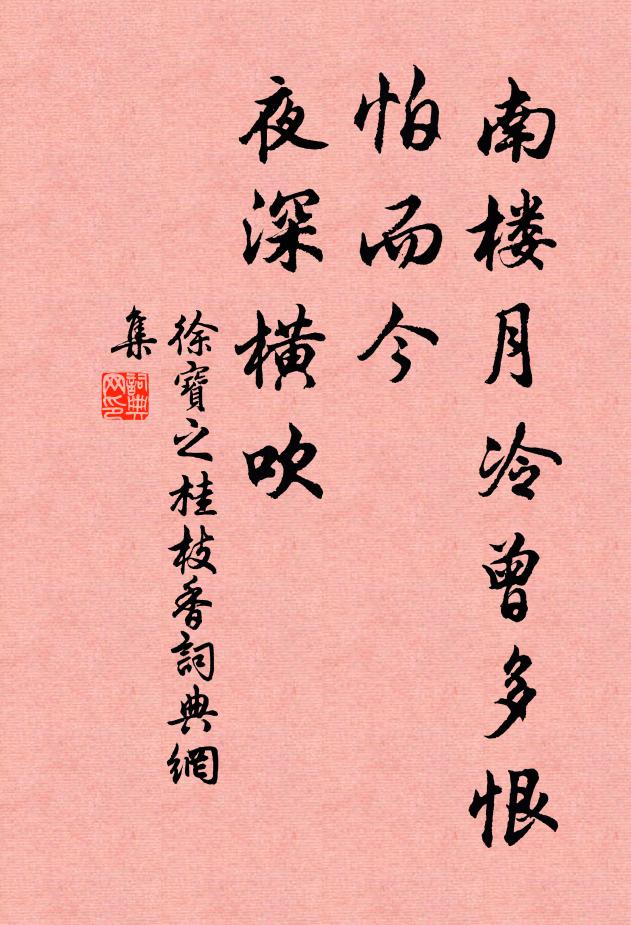 南楼月冷曾多恨
怕而今
夜深横吹
徐寶之桂枝香詞典網
集
詞典
网印